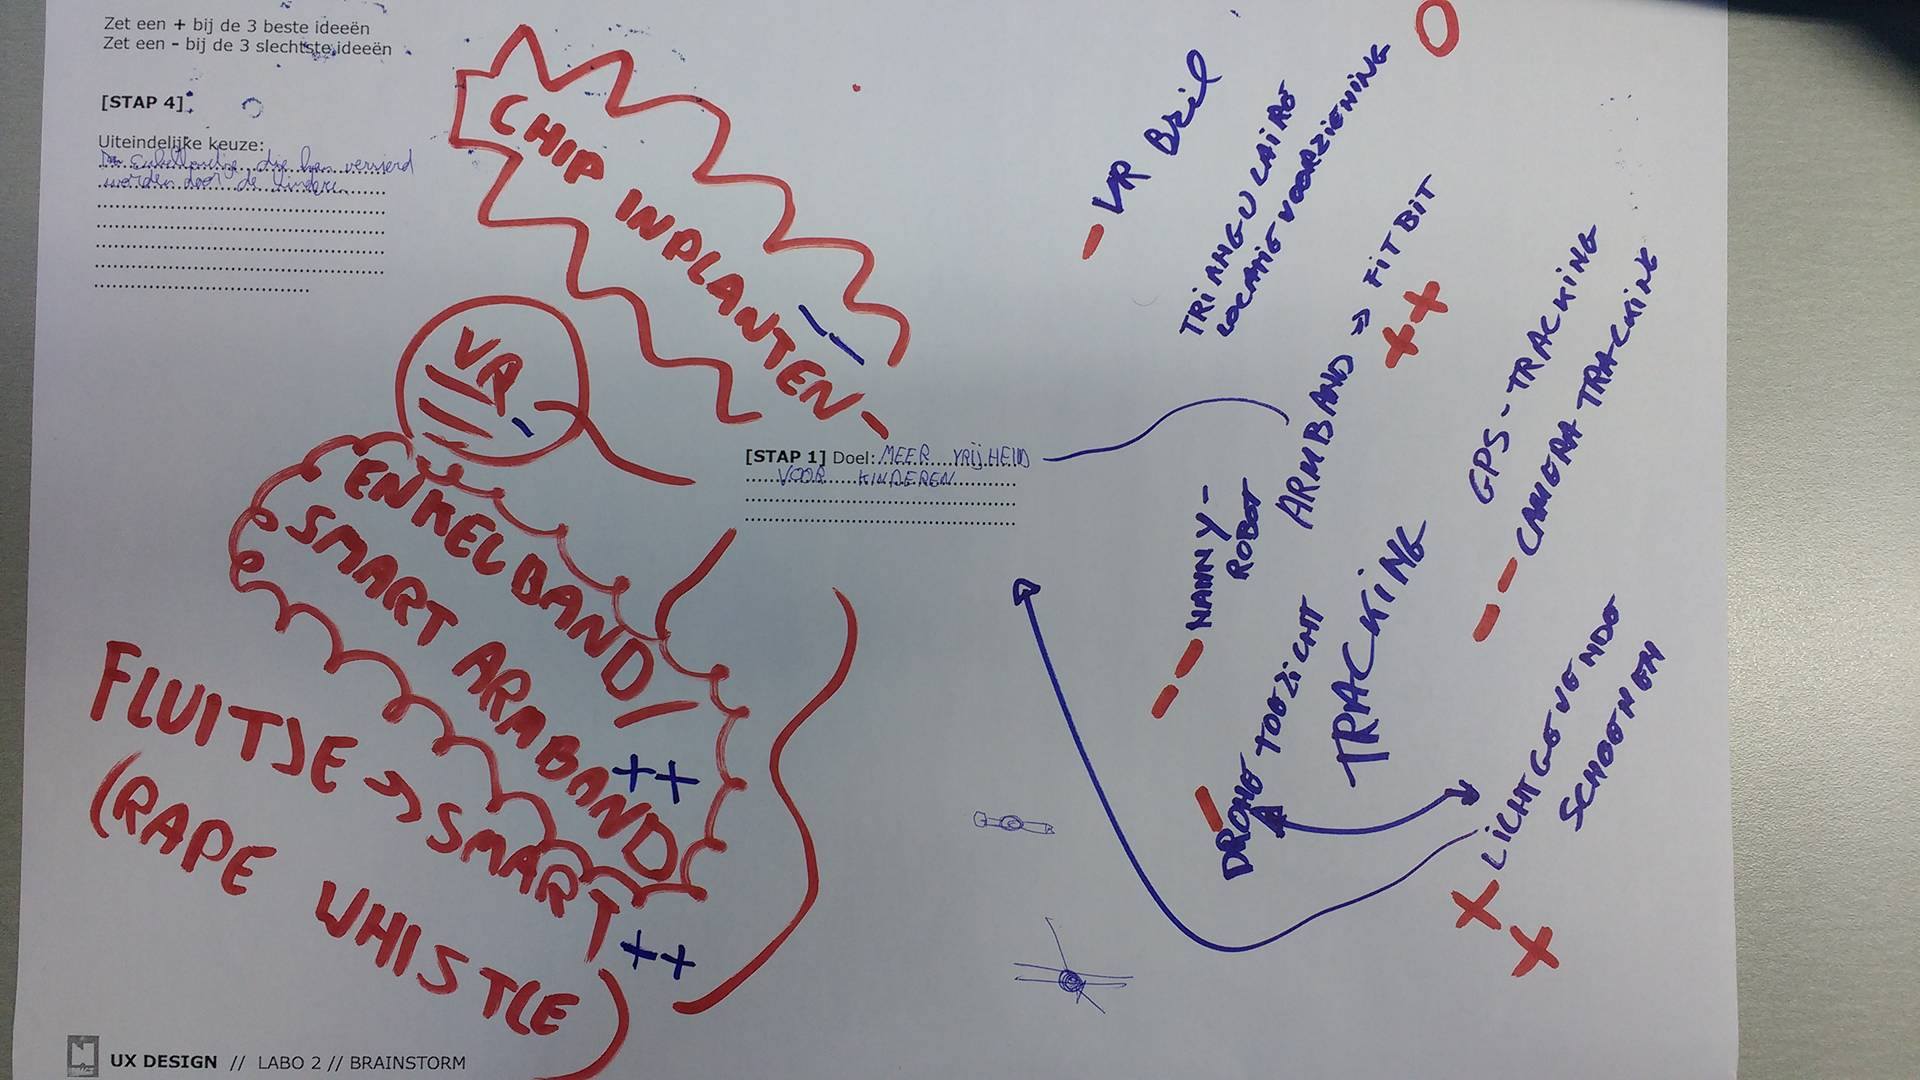 Zet een + bij de 3 beste ideeën
Zet een - bij de 3 slechtste ideeën
[STAP 4]
Uiteindelijke keuze:
die kan versierd
worden door de kinderen
CHIP INPLANTEN -
VR
ENKELBAND/
SMART ARMBAND
++
FLUITJE → SMART
++
(RAPE WHISTLE)
[STAP 1] Doel: MEER VRIJHEID
VOOR KINDEREN
- VR Bril
TRIANGULAIRE
LOCATIEVOORZIENING
ARMBAND => FITBIT
++
GPS-TRACKING
-- CAMERA TRACKING
-- NANNY-
ROBOT
- DRONE TOEZICHT
TRACKING
LICHTGEVENDE
SCHOENEN
++
UX DESIGN // LABO 2 // BRAINSTORM